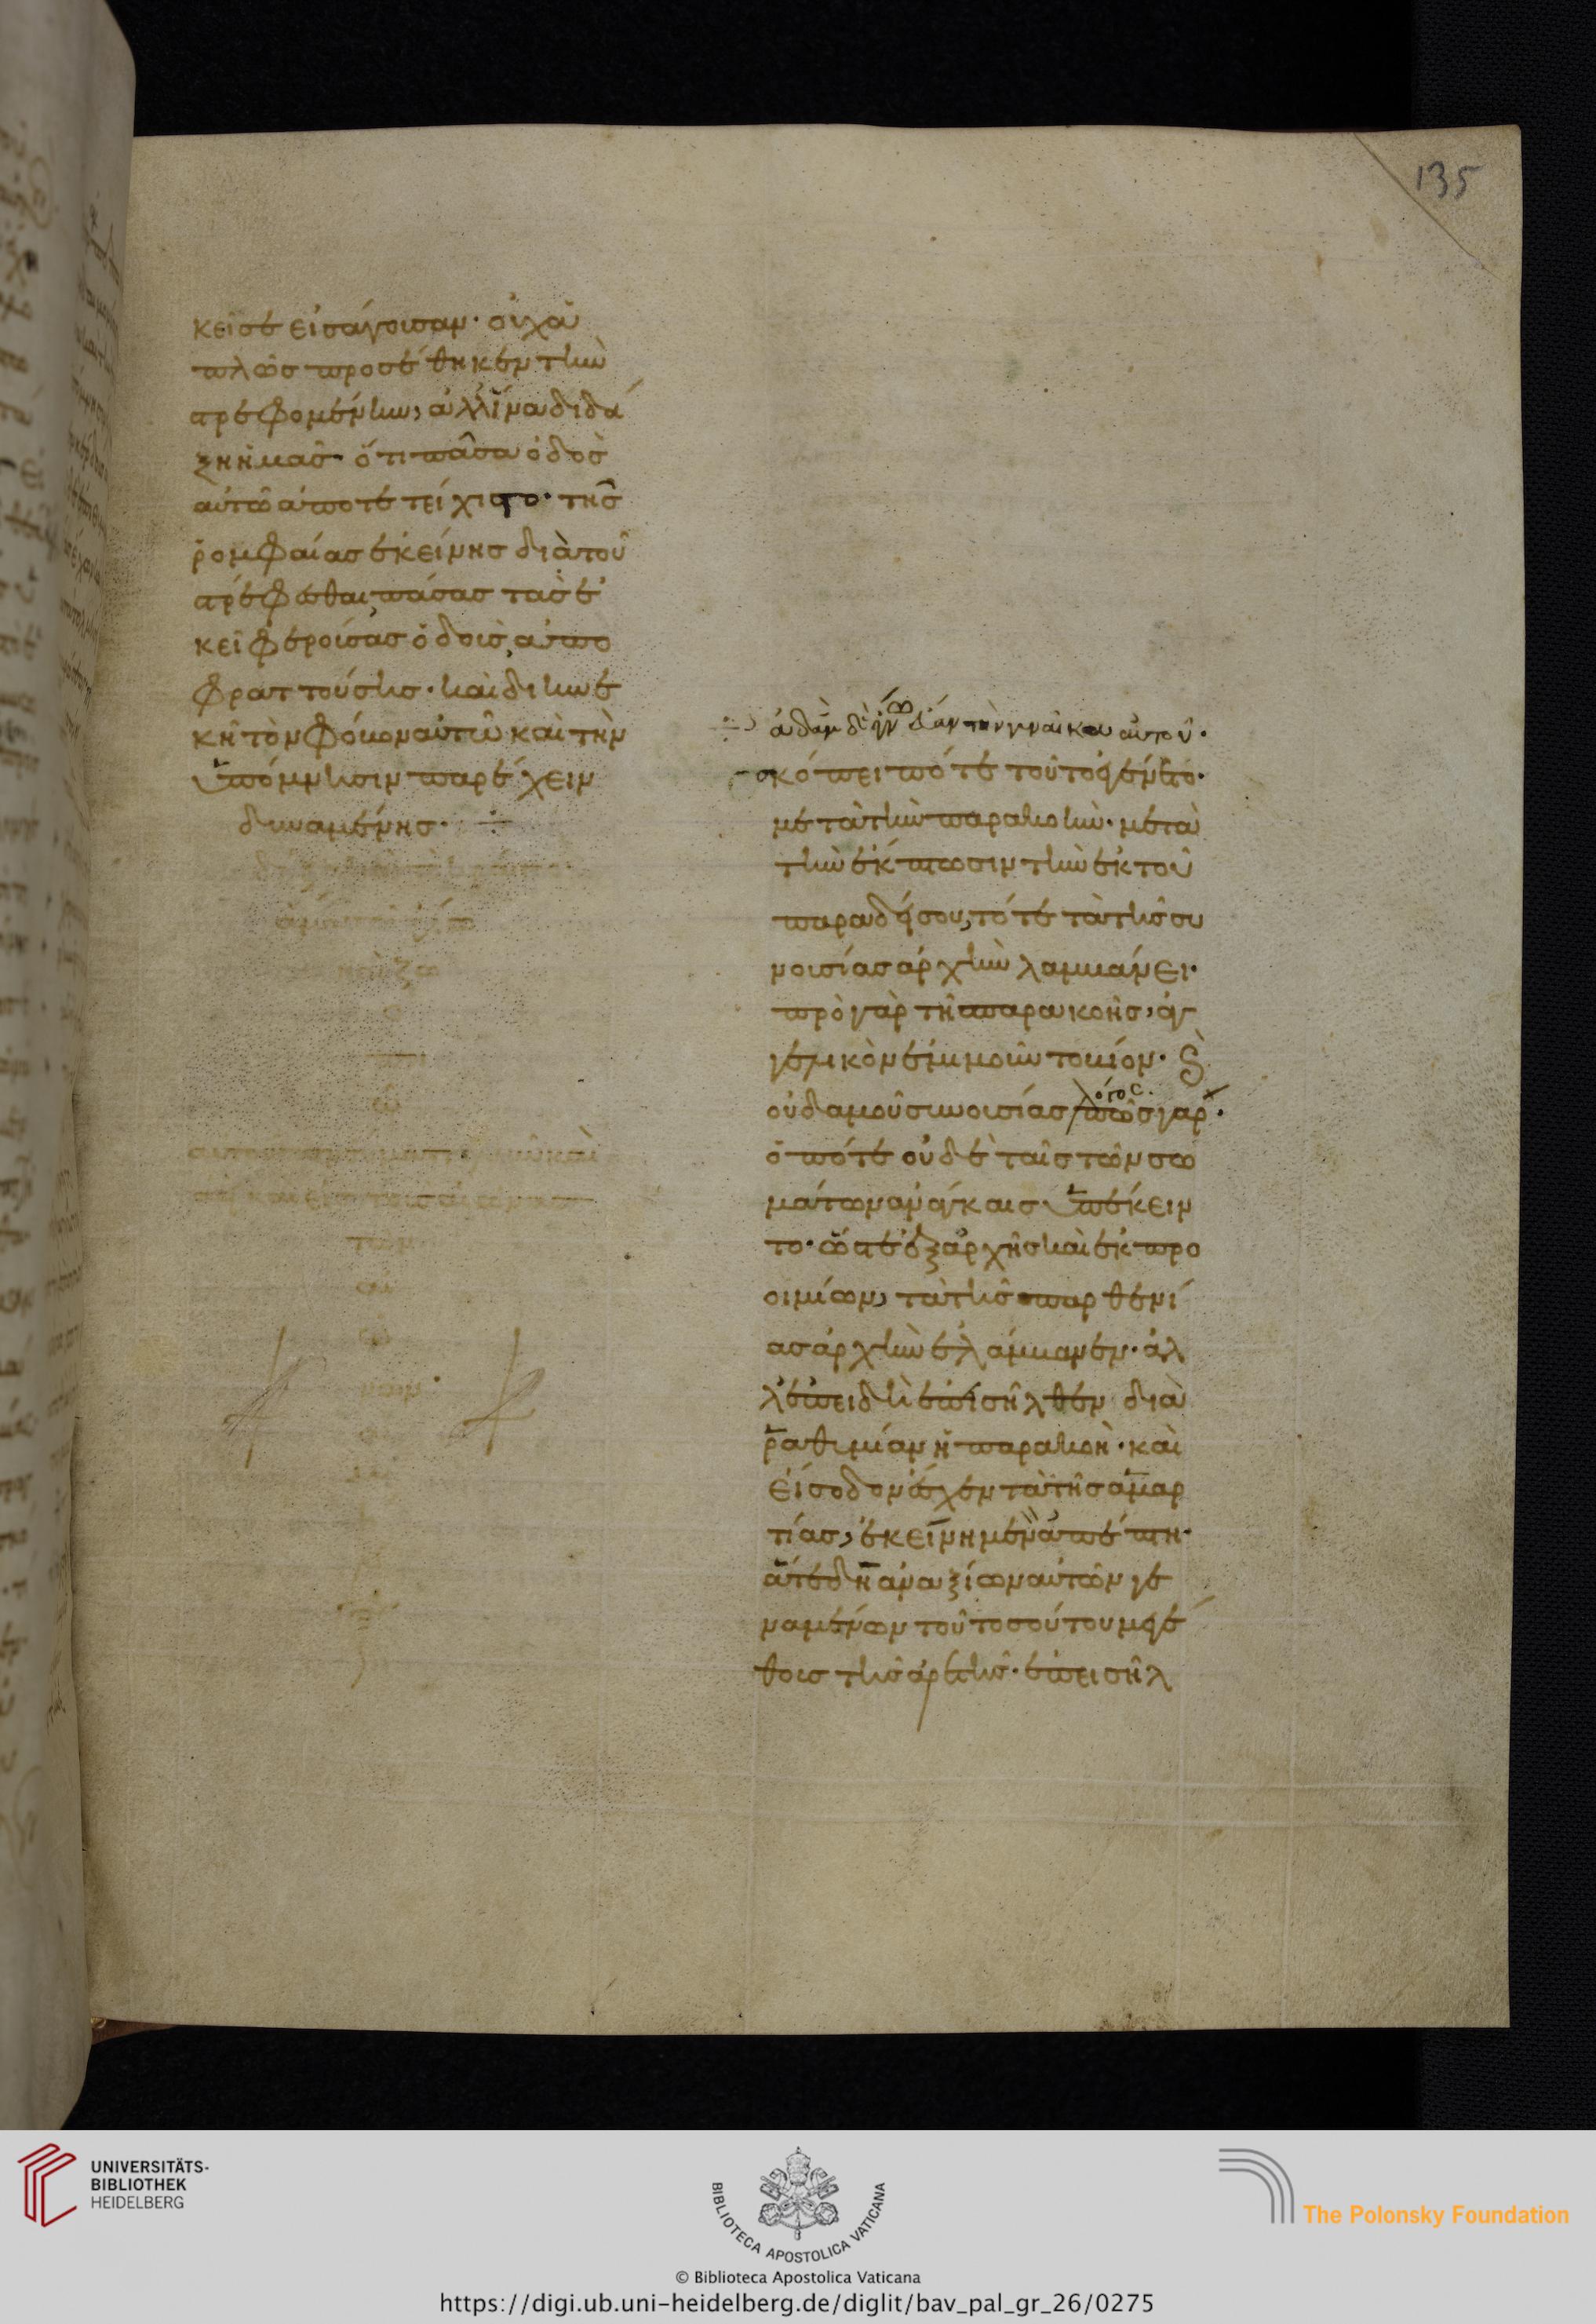 135
κεῖσε εἰσάγουσαν· οὐχ ἁ
πλῶς προσέθηκεν τὴν
στρεφομένην, ἀλλ' ἵνα διδά
ξῃ ἡμᾶς· ὅτι πᾶσα ὁδὸς
αὐτῶ ἀποτετείχιστο· τῆς
ῥομφαίας ἐκείνης διὰ τοῦ
στρέφεσθαι, πάσας τὰς ἐ
κεῖ φερούσας ὁδοὺς, ἀπο
φραττούσης· καὶ διηνε
κῆ τὸν φόβον αὐτῶ καὶ τὴν
ὑπόμνησιν παρέχειν
δυναμένης·
ἀδὰμ δὲ ἔγνω εὔαν τὴν γυναῖκα αὐτοῦ·
σκόπει πότε τοῦτο ἐγένετο·
μετὰ τὴν παρακοὴν· μετὰ
τὴν ἔκπτωσιν τὴν ἐκ τοῦ
παραδείσου, τότε τὰ τῆς συ
νουσίας ἀρχὴν λαμβάνει·
πρὸ γὰρ τῆς παρακοῆς, ἀγ
γελικὸν ἐμιμοῦντο βίον· καὶ
οὐδαμοῦ συνουσίας λόγος· πῶς γάρ·
ὁπότε οὐδὲ ταῖς τῶν σω
μάτων ἀνάγκαις ὑπέκειν
το· ὥστε ἐξ ἀρχῆς καὶ ἐκ προ
οιμίων, τὰ τῆς παρθενί
ας ἀρχὴν ἐλάμβανεν· ἀλ
λ' ἐπειδὴ ἐπεισῆλθεν διὰ
ῥαθυμίαν ἡ παρακοὴ· καὶ
εἴσοδον ἔσχεν τὰ τῆς ἁμαρ
τίας, ἐκείνη μὲν ἀπέπτη·
ἅτε δὴ ἀναξίων αὐτῶν γε
ναμένων τοῦ τοσούτου μεγέ
θους τῆς ἀρετῆς· ἐπεισῆλ
UNIVERSITÄTS-
BIBLIOTHEK
HEIDELBERG
BIBLIOTECA APOSTOLICA VATICANA
The Polonsky Foundation
© Biblioteca Apostolica Vaticana
https://digi.ub.uni-heidelberg.de/diglit/bav_pal_gr_26/0275